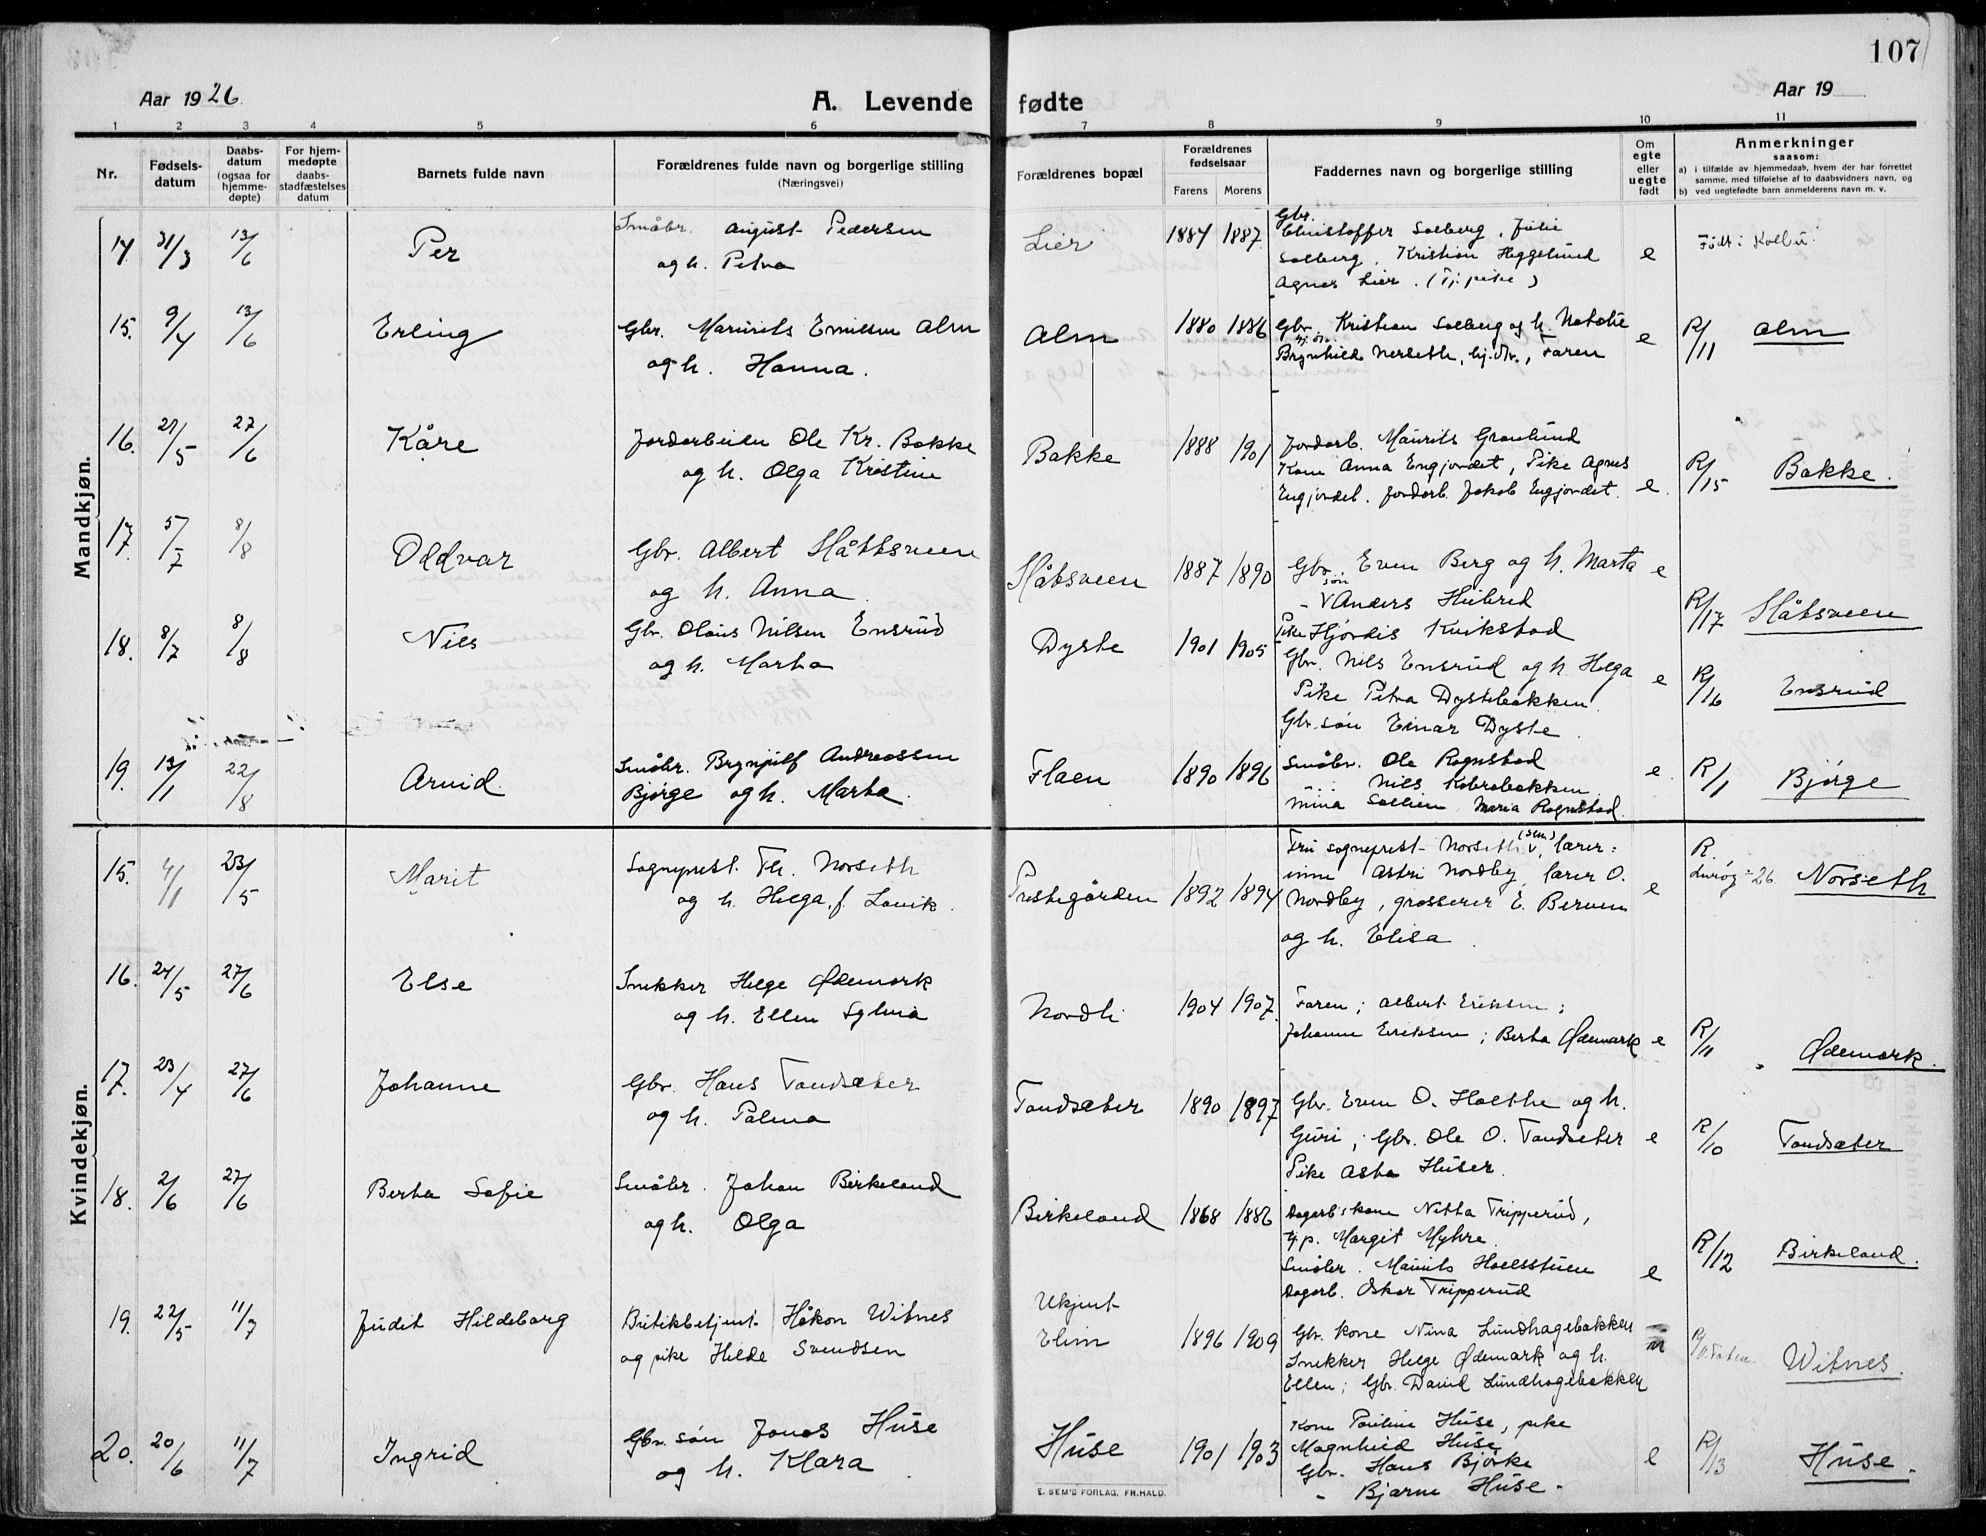 107
Aar 1926
A. Levende fødte
Aar 19
1 2 3 4 5 6 7 8 9 10 11
Nr.
Fødsels-
datum
Daabs-
datum
(ogsaa for
hjemme-
døpte)
For hjem-
medøpte
daabs-
stadfæstelses
datum
Barnets fulde navn
Forældrenes fulde navn og borgerlige stilling
(Næringsvei)
Forældrenes bopæl
Forældrenes
fødselsaar
Farens Morens
Faddernes navn og borgerlige stilling
Om
egte
eller
uegte
født
Anmerkninger
saasom:
a) i tilfælde av hjemmedaab, hvem der har forrettet
samme, med tilføielse af to daabsvidners navn, og
b) ved uegtefødte barn anmelderens navn m. v.
Mandkjøn.
14 31/3 13/6 Per
Småbr. August Pedersen
og h. Petra
Lier 1884 1887
Gbr.
Christoffer Solberg, Julie
Solberg, Kristian Heggelund
Agnes Lier. (Tj. pike)
e Født i Kolbu
15. 9/4 13/6 Erling
Gbr. Maurits Emilsen Alm
og h. Hanna.
Alm 1880 1886
Gbr. Kristian Solberg og h. Natalie
Brynhild Nerseth, hj. dtr., Faren
e R/11 Alm
16. 21/5 27/6 Kåre
Jordarbeider Ole Kr. Bakke
og h. Olga Kristine
Bakke 1888 1901
Jordarb. Maurits Granlund
Kone Anna Engjordet, Pike Agnes
Engjordet. Jordarb. Jakob Engjordet.
e. R/15 Bakke.
17. 5/7 8/8 Oddvar
Gbr. Albert Slåttsveen
og h. Anna.
Slåtsveen 1887 1890
Gbr. Even Berg og h. Marta
søn
- Anders Hilred
Pike Hjørdis Kvikstad
e R/17 Slåtsveen
18. 8/7 8/8 Nils
Gbr. Olaus Nilsen Ensrud
og h. Marta
Dyste 1901 1905
Gbr. Nils Ensrud og h. Helga
Pike Petra Dystebakken.
Gbr. søn Einar Dyste.
e R/16 Ensrud
19. 13/1 22/8 Arvid.
Småbr. Brynjulf Andreassen
Bjørge og h. Marta.
Flaen 1890 1896
Småbr. Ole Rognstad
Nils Kobrobakken.
Mina Sollien Maria Rognstad.
e. R/1 Bjørge
Kvindekjøn.
15. 4/1 23/5 Marit
Sogneprest. Th. Norseth
og h. Helga, f. Lovik.
Prestegården 1892 1894
Fru sogneprest Norseth (sen.), lærer-
inne Astri Nordby, lærer O.
Nordby, grosserer E. Berven
og h. Elisa.
e R. 26. Norseth
16. 24/5 27/6 Else
Snekker Helge Ødemark
og h. Ellen Sylvia
Nordli 1904 1907.
Faren; Albert Eriksen;
Johanne Eriksen; Berta Ødemark
e R/11 Ødemark.
17. 23/4 27/6 Johanne
Gbr. Hans Tandsæter
og h. Palma
Tandsæter 1890 1897
Gbr. Even O. Holthe og h.
Guri; Gbr. Ole O. Tandsæter
Pike Asta Huser.
e R/10 Tandsæter
18. 2/6 27/6 Berta Sofie
Småbr. Johan Birkeland
og h. Olga
Birkeland 1868 1886
Dagarb. kone Netta Tripperud,
Tj. p. Margit Myhre.
Småbr. Maurits Hoelsstuen
Dagarb. Oskar Tripperud
e R/12 Birkeland.
19. 22/5 11/7 Judit Hildeborg
Butikbetjent Håkon Witnes
og pike Hilde Svendsen
Ukjent
Elim 1896 1909
Gbr. kone Nina Lundhagebakken
Snekker Helge Ødemark og h.
Ellen; Gbr. David Lundhagebakken
Witnes.
20. 20/6 11/7 Ingrid
Gbr. søn Jonas Huse
og h. Klara
Huse 1901 1903
Kone Pauline Huse, pike
Magnhild Huse
Gbr. Hans Bjørke
- Bjarne Huse.
e R/13 Huse.
E. SEM'S FORLAG. FR.HALD.